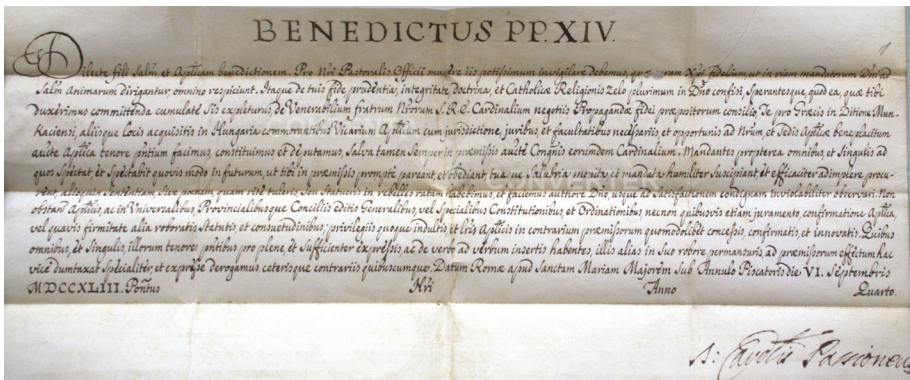 BENEDICTUS PP. XIV.
Dilecte fili Salm̄ et Aplīcam benedictionem. Pro Nrī Pastoralis Officii munere iis potissimum invigilare debemus, quæ Xpī fidelium, ut in viam mandatorum Dnī ad
Salm̄ Animarum dirigantur, omnino respiciunt. Itaque de tuis fide, prudentia, integritate, doctrina, et Catholicæ Religionis zelo plurimum in Dnō confisi, Sperantesque, quod ea, quæ tibi
duxerimus committenda cumulate Sis expleturus, de Venerabilium fratrum Nrorum S. R. E. Cardinalium negotiis Propagandæ fidei præpositorum consilio, Te pro Græcis in Ditione Mun-
Kaciensi, aliisque Locis acquisitis in Hungaria commorantibus Vicarium Aplīcum cum jurisdictione, juribus, et facultatibus necessariis et opportunis ad Nrum, et Sedis Aplīcæ beneplacitum
aucte Aplīca tenore pntium facimus, constituimus et deputamus, Salva tamen Semper in præmissis aucte Congnis eorumdem Cardinalium. Mandantes propterea omnibus, et Singulis ad
quos Spectat, et Spectabit quovis modo in futurum, ut tibi in præmissis prompte pareant, et obediant, tuaque Salubria monita, et mandata humiliter Suscipiant et efficaciter adimplere procu-
rent, alioquin Sententiam, Sive pœnam, quam rite tuleris, Seu Statueris in rebelles ratam habebimus, et faciemus auctore Dnō, usque ad Satisfactionem condignam inviolabiliter observari. Non
obstan Aplīcis, ac in Universalibus, Provincialibusque Conciliis editis Generalibus, vel Specialibus Constitutionibus, et Ordinationibus, necnon quibusvis etiam juramento, confirmatione Aplīca,
vel quavis firmitate alia roboratis Statutis, et consuetudinibus; privilegiis quoque, indultis, et Lris Aplīcis in contrarium præmissorum quomodolibet concessis, confirmatis, et innovatis. Quibus
omnibus, et Singulis, illorum tenores pntibus pro plene, et Sufficienter expressis, ac de verbo ad verbum insertis habentes, illis alias in Suo robore permansuris, ad præmissorum effectum hac
vice dumtaxat Specialiter, et expresse derogamus, ceterisque contrariis quibuscumque. Datum Romæ apud Sanctam Mariam Majorem Sub Annulo Piscatoris die VI. Septembris
MDCCXLIII. Pontus Nrī Anno Quarto.